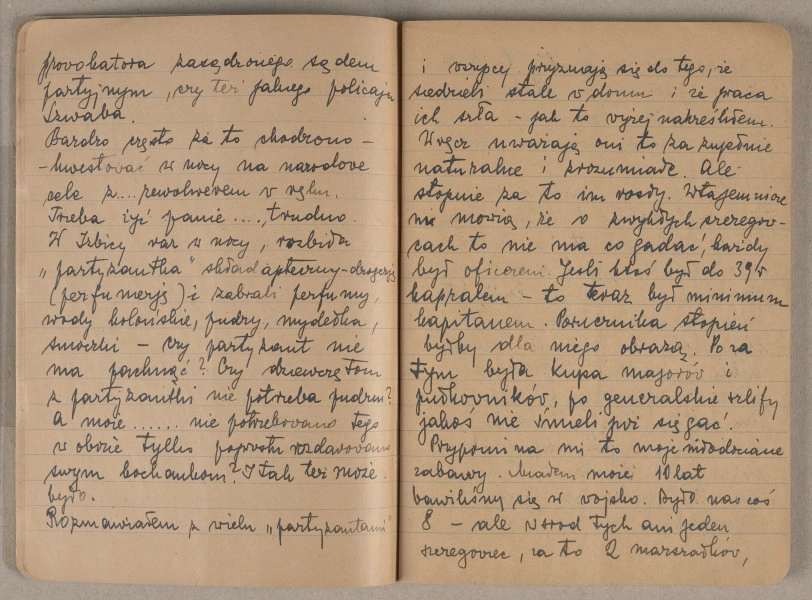 prowokatora zasądzonego sądem
partyjnym, czy też jakiegoś policaja
Szwaba.
Bardzo często za to chodzono -
- kwestować w nocy na narodowe
cele z .... rewolwerem w ręku.
Trzeba żyć panie ...., trudno.
W Izbicy raz w nocy, rozbiła
"partyzantka" skład apteczny-drogerję
(perfumerję) i zabrali perfumy,
wody kolońskie, pudry, mydełka,
smoczki - Czy partyzant nie
ma pachnąć? Czy dziewczętom
z partyzantki nie potrzeba pudru?
A może ...... nie potrzebowano tego
w obozie tylko poprostu rozdarowano
swym kochankom? I tak też może
było.
Rozmawiałem z wielu "partyzantami"
i wszyscy przyznają się do tego, że
siedzieli stale w domu i że praca
ich szła - jak to wyżej nakreśliłem.
Wręcz uważają oni to za zupełnie
naturalne i zrozumiałe. Ale
stopnie za to im rosły. Wtajemniczeni
mówią, że o zwykłych szeregow-
cach to nie ma co gadać, każdy
był oficerem. Jeśli ktoś był do 39 r
kapralem - to teraz był minimum
kapitanem. Porucznika stopień
byłby dla niego obrazą. Poza
tym była kupa majorów i
pułkowników, po generalskie szlify
jakoś nie śmieli już sięgać.
Przypomina mi to moje młodociane
zabawy. Miałem może 10 lat
bawiliśmy się w wojsko. Było nas coś
8 - ale wśród tych ani jeden
szeregowiec, za to 2 marszałków,